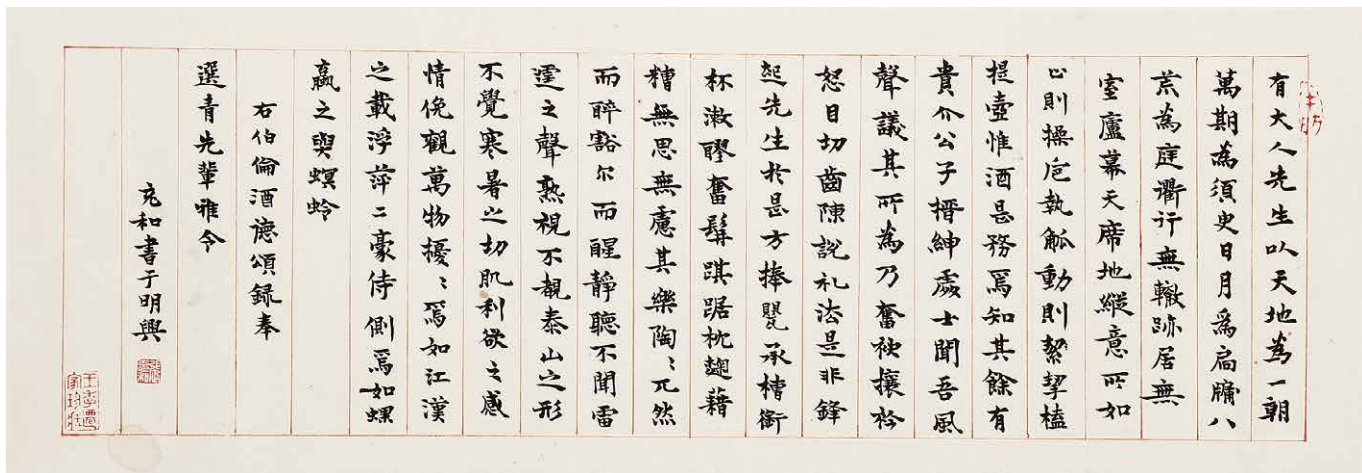 有大人先生以天地為一朝
萬期為須臾日月為扃牖八
荒為庭衢行無轍跡居無
室廬幕天席地縱意所如
止則操卮執觚動則挈榼
提壺惟酒是務焉知其餘有
貴介公子搢紳處士聞吾風
聲議其所為乃奮袂攘衿
怒目切齒陳說礼法是非鋒
起先生於是方捧甖承槽銜
杯漱醪奮髯踑踞枕麴藉
糟無思無慮其樂陶〻兀然
而醉豁尔而醒靜聽不聞雷
霆之聲熟視不覩泰山之形
不覺寒暑之切肌利欲之感
情俛觀萬物擾〻焉如江漢
之載浮萍二豪侍側焉如螺
蠃之與螟蛉
右伯倫酒德頌録奉
選青先輩雅令
充和書于明興